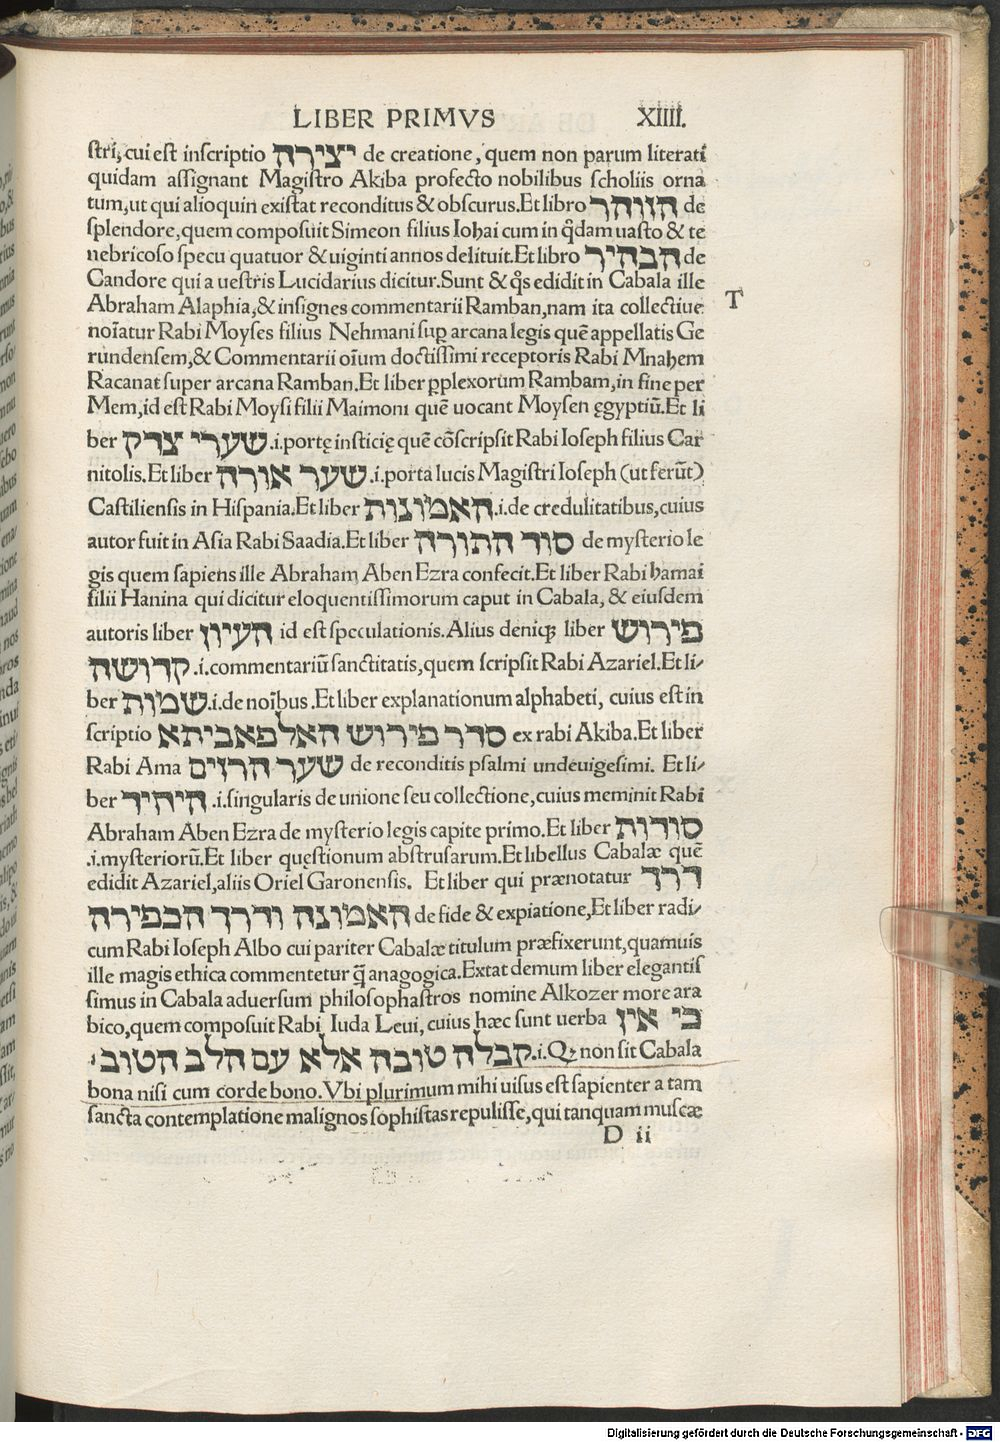 LIBER PRIMVS XIIII.
ſtri, cui eſt inſcriptio יצירה de creatione, quem non parum literati
quidam aſſignant Magiſtro Akiba profecto nobilibus ſcholiis orna
tum, ut qui alioquin existat reconditus & obſcurus. Et libro הזוהר de
ſplendore, quem compoſuit Simeon filius Ioḥai cum in q̄dam uaſto & te
nebricoſo ſpecu quatuor & uiginti annos delituit. Et libro הבהיר de
Candore qui a ueſtris Lucidarius dicitur. Sunt & q̄s edidit in Cabala ille
Abraham Alaphia, & inſignes commentarii Ramban, nam ita collectiue
T
noīatur Rabi Moyſes filius Nehmani ſuꝑ arcana legis quē appellatis Ge
rundenſem, & Commentarii oīum doctiſſimi receptoris Rabi Mnaḥem
Racanat ſuper arcana Ramban. Et liber ꝑplexorum Rambam, in fine per
Mem, id eſt Rabi Moyſi filii Maimoni quē uocant Moyſen ęgyptiū. Et li
ber שערי צדק .i. portę inſticię quē cōſcripſit Rabi Ioſeph filius Car
nitolis. Et liber שער אורה .i. porta lucis Magiſtri Ioſeph (ut ferūt)
Caſtilienſis in Hiſpania. Et liber האמונות .i. de credulitatibus, cuius
autor fuit in Aſia Rabi Saadia. Et liber סוד התורה de myſterio le
gis quem ſapiens ille Abraham Aben Ezra confecit. Et liber Rabi hamai
filii Hanina qui dicitur eloquentiſſimorum caput in Cabala, & eiuſdem
autoris liber העיון id eſt ſpeculationis. Alius deniqꝫ liber פירוש
קדושה .i. commentariū ſanctitatis, quem ſcripſit Rabi Azariel. Et li/
ber שמות .i. de noībus. Et liber explanationum alphabeti, cuius eſt in
ſcriptio סדר פירוש האלפאביתא ex rabi Akiba. Et liber
Rabi Ama שער הרזים de reconditis pſalmi undeuigeſimi. Et li/
ber היחיד .i. ſingularis de unione ſeu collectione, cuius meminit Rabi
Abraham Aben Ezra de myſterio legis capite primo. Et liber סודות
.i. myſteriorū. Et liber quęſtionum abſtruſarum. Et libellus Cabalæ quē
edidit Azariel, aliis Oriel Garonenſis. Et liber qui prænotatur דרך
האמונה ודרך הכפירה de fide & expiatione, Et liber radi/
cum Rabi Ioſeph Albo cui pariter Cabalæ titulum præfixerunt, quamuis
ille magis ethica commentetur q̄ anagogica. Extat demum liber elegantiſ
ſimus in Cabala aduerſum philoſophaſtros nomine Alkozer more ara
bico, quem compoſuit Rabi Iuda Leui, cuius hæc ſunt uerba כי אין
קבלה טובה אלא עם הלב הטוב .i. Qꝫ non ſit Cabala
bona niſi cum corde bono. Vbi plurimum mihi uiſus eſt ſapienter a tam
ſancta contemplatione malignos ſophiſtas repuliſſe, qui tanquam muſcæ
D ii
Digitalisierung gefördert durch die Deutsche Forschungsgemeinschaft - DFG